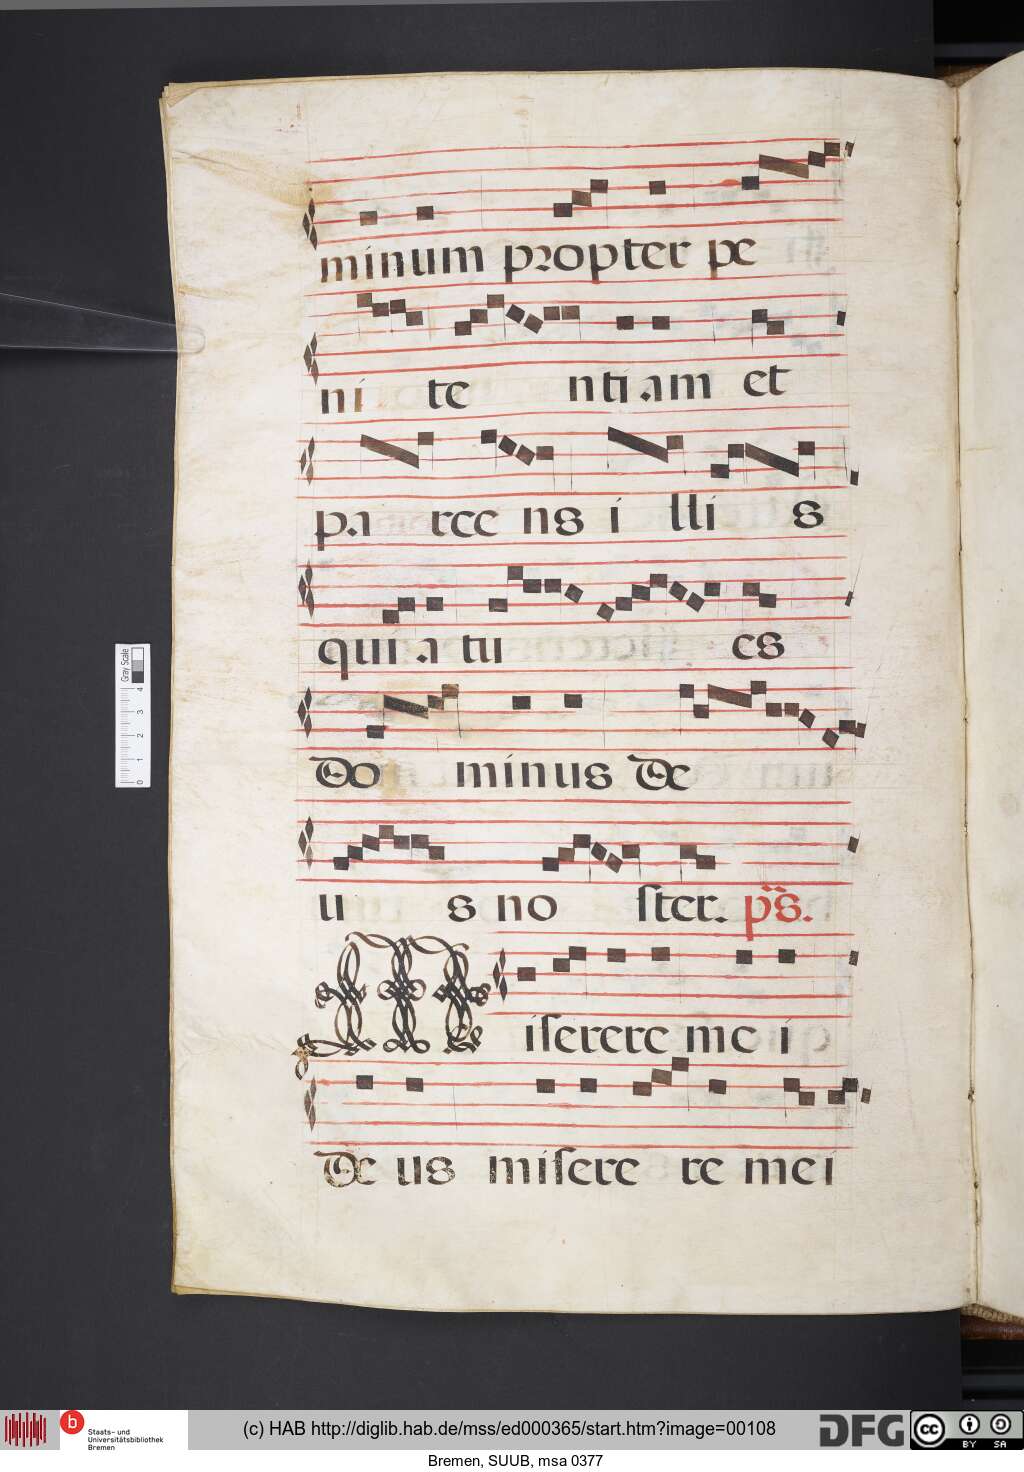 minum propter pe
ni te ntiam et
pa rce ns i lli s
qui a tu es
Do minus De
u s no ster. ps.
Miserere me i
De us misere re mei
Gray Scale
4
3
2
1
0
b
Staats- und
Universitätsbibliothek
Bremen
(c) HAB http://diglib.hab.de/mss/ed000365/start.htm?image=00108
DFG
cc BY SA
Bremen, SUUB, msa 0377